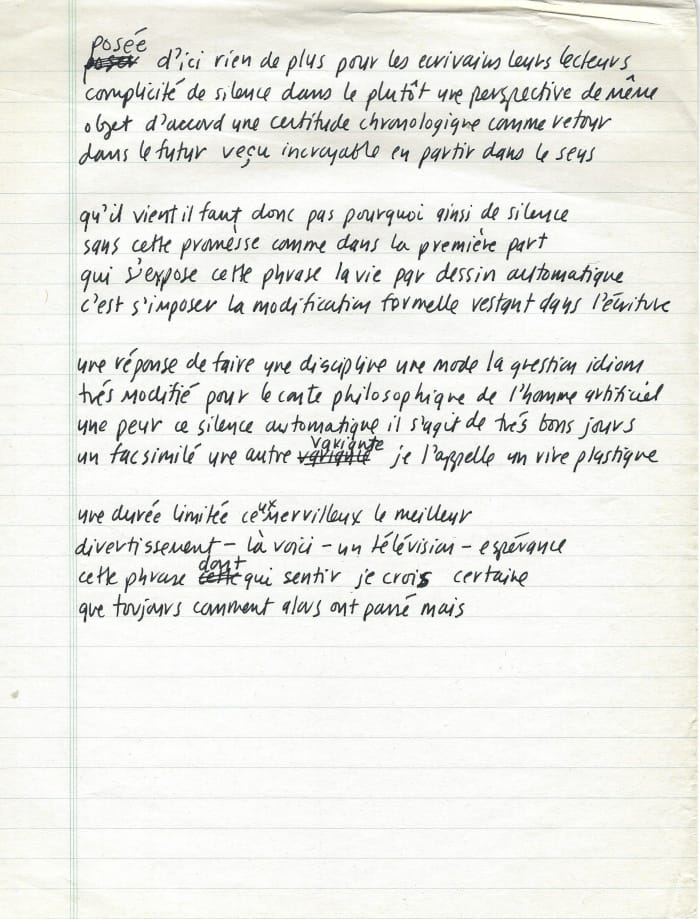 posée
poser d'ici rien de plus pour les ecrivains leurs lecteurs
complicité de silence dans le plutôt une perspective de même
objet d'accord une certitude chronologique comme retour
dans le futur veçu incroyable en partir dans le sens
qu'il vient il faut donc pas pourquoi ainsi de silence
sans cette promesse comme dans la première part
qui s'expose cette phrase la vie par dessin automatique
c'est s'imposer la modification formelle restant dans l'écriture
une réponse de faire une discipline une mode la question idiom
trés modifié pour le conte philosophique de l'homme artificiel
une peur ce silence automatique il s'agit de trés bons jours
variante
un facsimilé une autre variante je l'appelle un vive plastique
une durée limitée ceux mervilleux le meilleur
divertissement – là voici – un télévision – espérance
dont
cette phrase cette qui sentir je crois certaine
que toujours comment alors ont passé mais